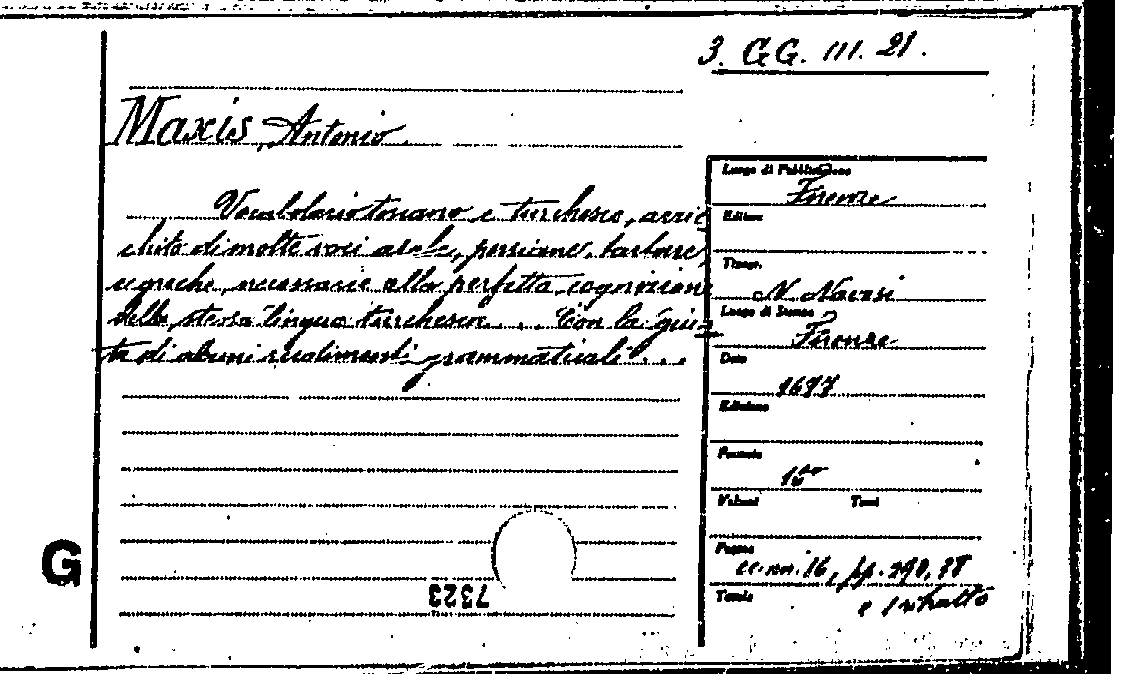 3. GG. III. 21.
Maxis, Antonio
Vocabolario toscano e turchesco, arric
chito di molte voci arabe, persiane, barbare,
e greche, necessarie alla perfetta cognizione
della stessa lingua turchesca ... Con la giun
ta di alcuni rudimenti grammaticali ...
Luogo di Pubblicazione
Firenze
Editore
Tipogr.
N. Navesi
Luogo di Stampa
Firenze
Data
1677
Edizione
Formato
Volumi Tomi
Pagine
cc. nn. 16, pp. 290, 88
Tavole
e 1 ritratto
G
7323